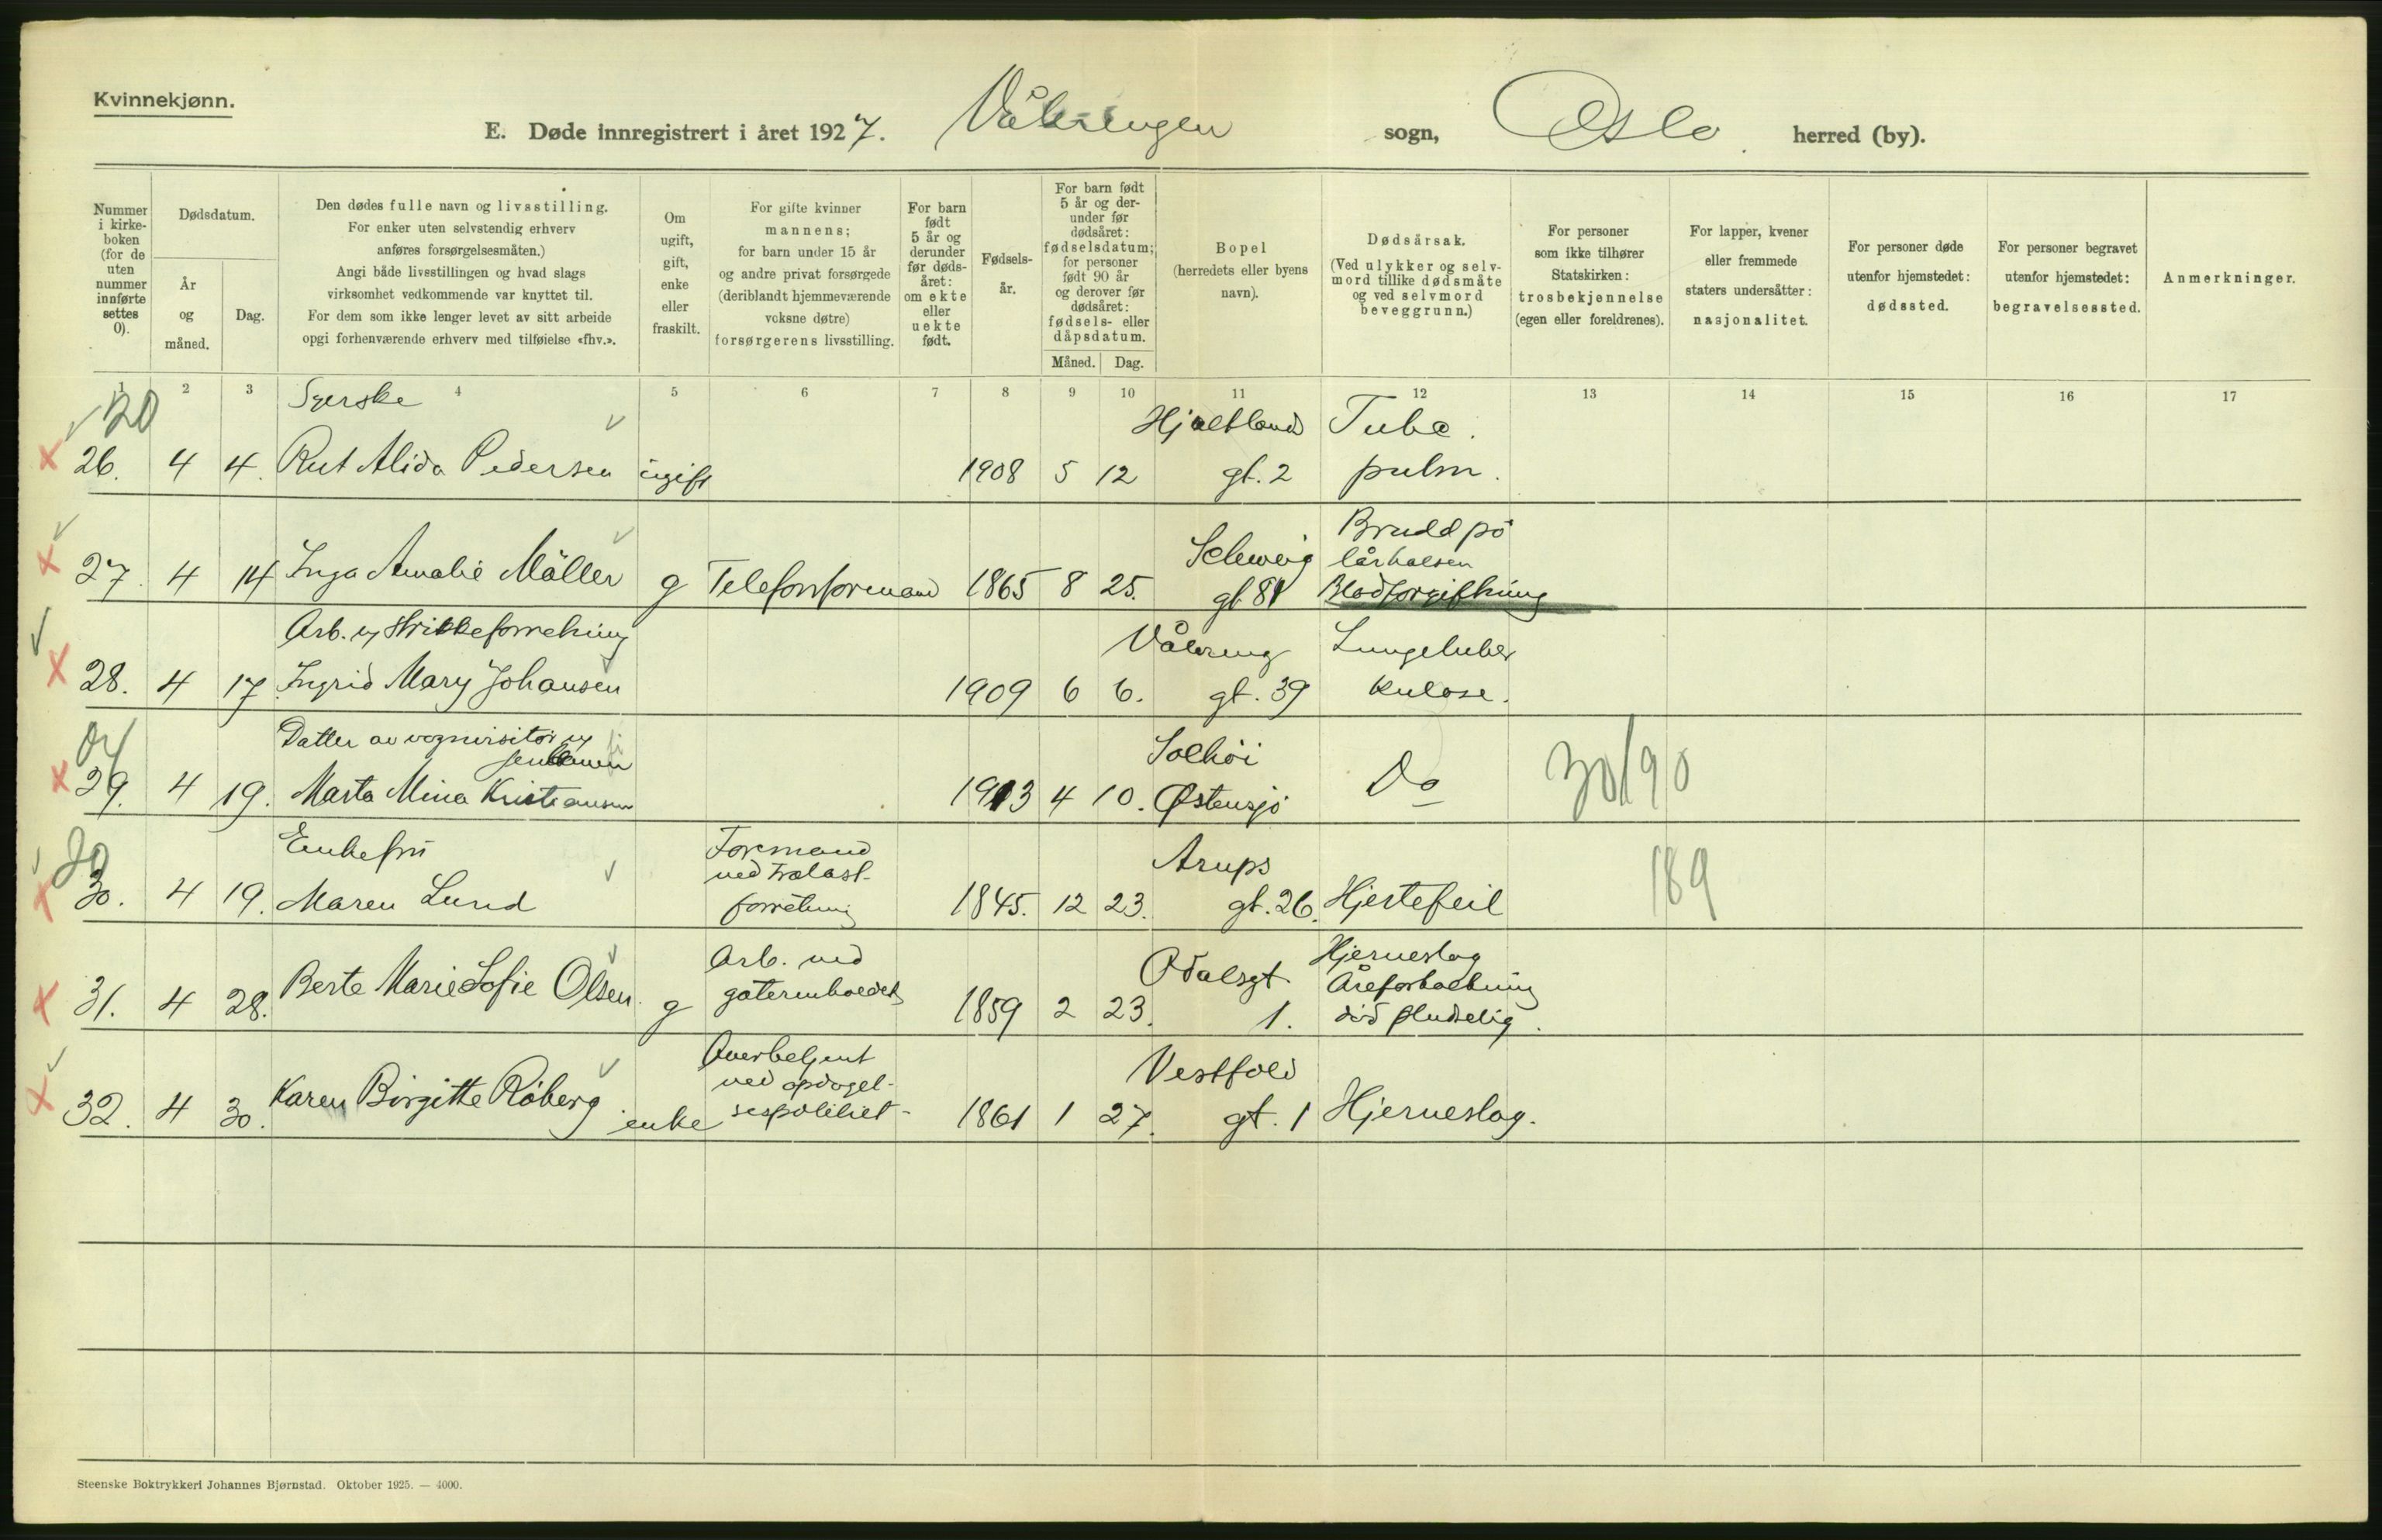 Kvinnekjønn.
E. Døde innregistrert i året 1927. Vålerengen sogn, Oslo herred (by).
Nummer i kirkeboken (for de uten nummer innførte settes 0).
Dødsdatum.
År og måned.
Dag.
Den dødes fulle navn og livsstilling.
For enker uten selvstendig erhverv
anføres forsørgelsesmåten.)
Angi både livsstillingen og hvad slags
virksomhet vedkommende var knyttet til.
For dem som ikke lenger levet av sitt arbeide
opgi forhenværende erhverv med tilføielse «fhv.».
Om ugift, gift, enke eller fraskilt.
For gifte kvinner
mannens;
for barn under 15 år
og andre privat forsørgede
(deriblandt hjemmeværende
voksne døtre)
forsørgerens livsstilling.
For barn født 5 år og derunder før dødsåret: om ekte eller uekte født.
Fødselsår.
For barn født 5 år og derunder før dødsåret: fødselsdatum; for personer født 90 år og derover før dødsåret: fødsels- eller dåpsdatum.
Måned. Dag.
Bopel
(herredets eller byens
navn).
Dødsårsak.
(Ved ulykker og selvmord tillike dødsmåte og ved selvmord beveggrunn.)
For personer
som ikke tilhører
Statskirken:
trosbekjennelse
(egen eller foreldrenes).
For lapper, kvener
eller fremmede
staters undersåtter:
nasjonalitet.
For personer døde
utenfor hjemstedet:
dødssted.
For personer begravet
utenfor hjemstedet:
begravelsessted.
Anmerkninger.
1 2 3 4 5 6 7 8 9 10 11 12 13 14 15 16 17
Syerske Hjaltland Tube.
26. 4 4. Rut Alida Pedersen ugift 1908 5 12 gt. 2 pulm.
Brudd på
Schweig lårhalsen
27. 4 14 Inga Amalie Möller g Telefonformand 1865 8 25. gt 81 Blodforgiftning
Arb. og strikkeforretning Vålereng Lungetuber
28. 4 17 Ingrid Mary Johansen 1909 6 6. gt. 39 kulose.
Datter av vognvisitør Solhøi
29. 4 19. Marta Mina Kristiansen 1913 4 10. Østensjø Do 30/90
Enkefru Formand Arups
ved trelast-
30. 4 19. Maren Lund forretning 1845. 12 23. gt. 26. Hjertefeil 189
Arb. ved Odalsgt. Hjerneslag
Åreforkalkning
31. 4 28. Berte Marie Sofie Olsen g gaterenholdet 1859 2 23. 1. død pludselig.
Overbetjent Vestfold
ved opdagel-
32. 4 30. Karen Birgitte Röberg enke sespolitiet- 1861 1 27. gt. 1 Hjerneslag.
Steenske Boktrykkeri Johannes Bjørnstad. Oktober 1925. — 4000.